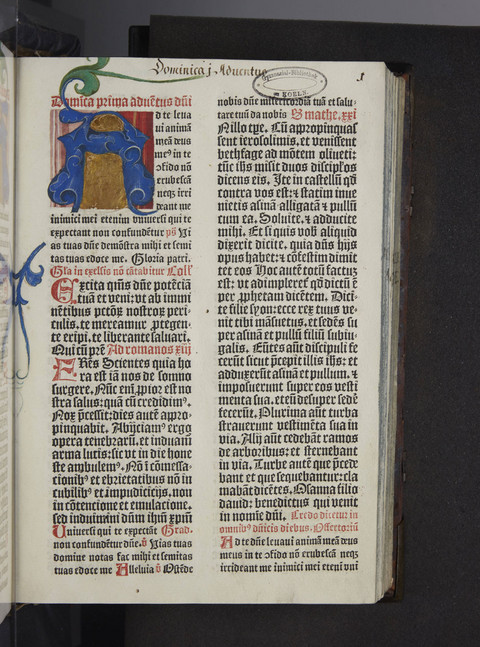 Dominica j Aduentus
1
Seminar-Bibliothek
KOELN
Domĩca prima aduẽtus dñi
d te leua
ui animã
meã deus
me⁹ in te
ɔfido nõ
erubescã
neqꝫ irri
deant me
inimici mei etenim vniuersi qui te
expectant non confundẽtur p̃s Vi
as tuas dñe demõstra mihi et semi
tas tuas edoce me. Gloria patri.
Gľa in exelsis nõ cãtabitur Coll'
Excita q̃sum⁹ dñe potẽciã
tuã et veni: vt ab immi
nẽtibus pctõꝝ nostroꝝ peri-
culis. te mereamur ꝓtegen-
te eripi. te liberante saluari.
Qui cũ pr̃e Ad romanos xiij
FRẽs Scientes quia ho
ra est iã nos de somno
surgere. Nũc eni᷈ ꝓpior est no
stra salus: quã cũ credidim⁹.
Nox p̃cessit: dies autẽ apro-
pinquabit. Abijciam⁹ ergo
opera tenebrarũ. et induam⁹
arma lucis: sic vt in die hone
ste ambulem⁹. Nõ ĩ cõmessa-
cionib⁹ et ebrietatibus nõ in
cubilib⁹ et ĩmpudicicijs. non
in cõtencione et emulacione.
sed induimini dñm ihm̃ xp̃m
Uniuersi qui te expectãt Grad.
non confundentur dñe. ℣ Vias tuas
domine notas fac mihi et semitas
tuas edoce me Alleluia ℣ Ostẽde
nobis dñe misericordiã tuã et salu-
tare tuũ da nobis S mathe. xxi
IN illo tp̃e. Cũ appropinquas
sent ierosolimis. et venissent
bethfage ad mõtem oliueti:
tũc ihs̃ misit duos discipľos
dicens eis. Ite in castellũ qd̃
contra vos est: ⁊ statim inue
nietis asinã alligatã ⁊ pullũ
cum ea. Soluite. ⁊ adducite
mihi. Et si quis vob̃ aliquid
dixerit dicite. quia dñs hijs
opus habet: ⁊ cõfestim dimit
tet eos Hoc autẽ totũ factuʒ
est: vt adimpleret᷑ qd̃ dictũ ẽ
per ꝓphetam dicẽtem. Dici-
te filie syon: ecce rex tuus ve-
nit tibi mãsuetus. et sedẽs su
per asinã et pullũ filiũ subiu-
galis. Eũtes autẽ discipuli fe
cerũt sicut p̃cepit illis ihs̃: et
adduxerũt asinã et pullum. ⁊
imposuerunt super eos vesti
menta sua. et eũ desuper sede
fecerũt. Plurima autẽ turba
strauerunt vestimẽta sua in
via. Alij autẽ cedebãt ramos
de arboribus: et sternebant
in via. Turbe autẽ que p̃cede
bant et que sequebantur: cla
mabãt dicẽtes. Osanna filio
dauid: benedictus qui venit
in nomie dñi. Credo dicitur in
omnib⁹ dñicis dieb⁹. Offertoriũ
Ad te dñe leuaui animã meã deus
meus in te ɔfido nõ erubescã neqꝫ
irrideant me inimici mei etenĩ vni